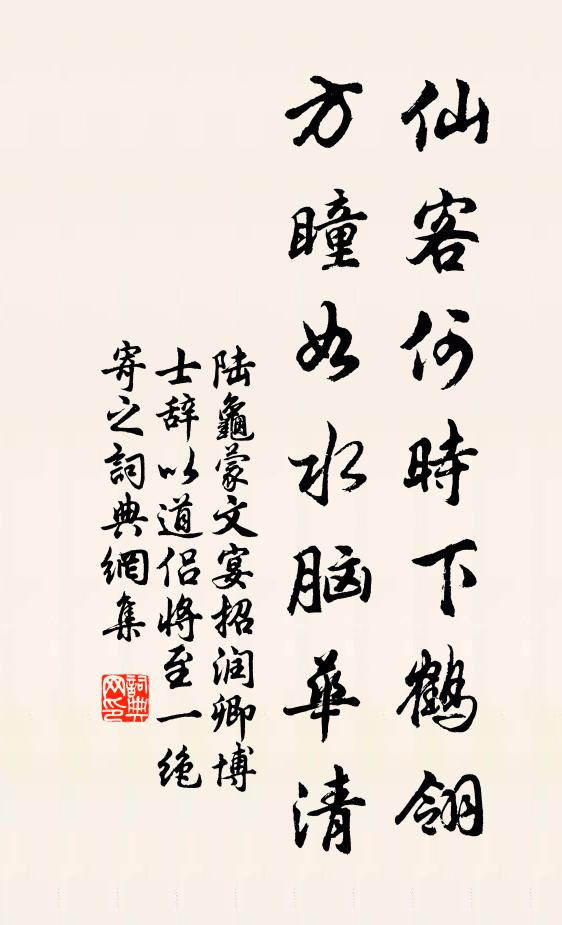 仙客何時下鶴翎
方瞳如水脑華清
陆龜蒙文宴招润卿博
士辞以道侣將至一绝
寄之詞典網集
詞典网印